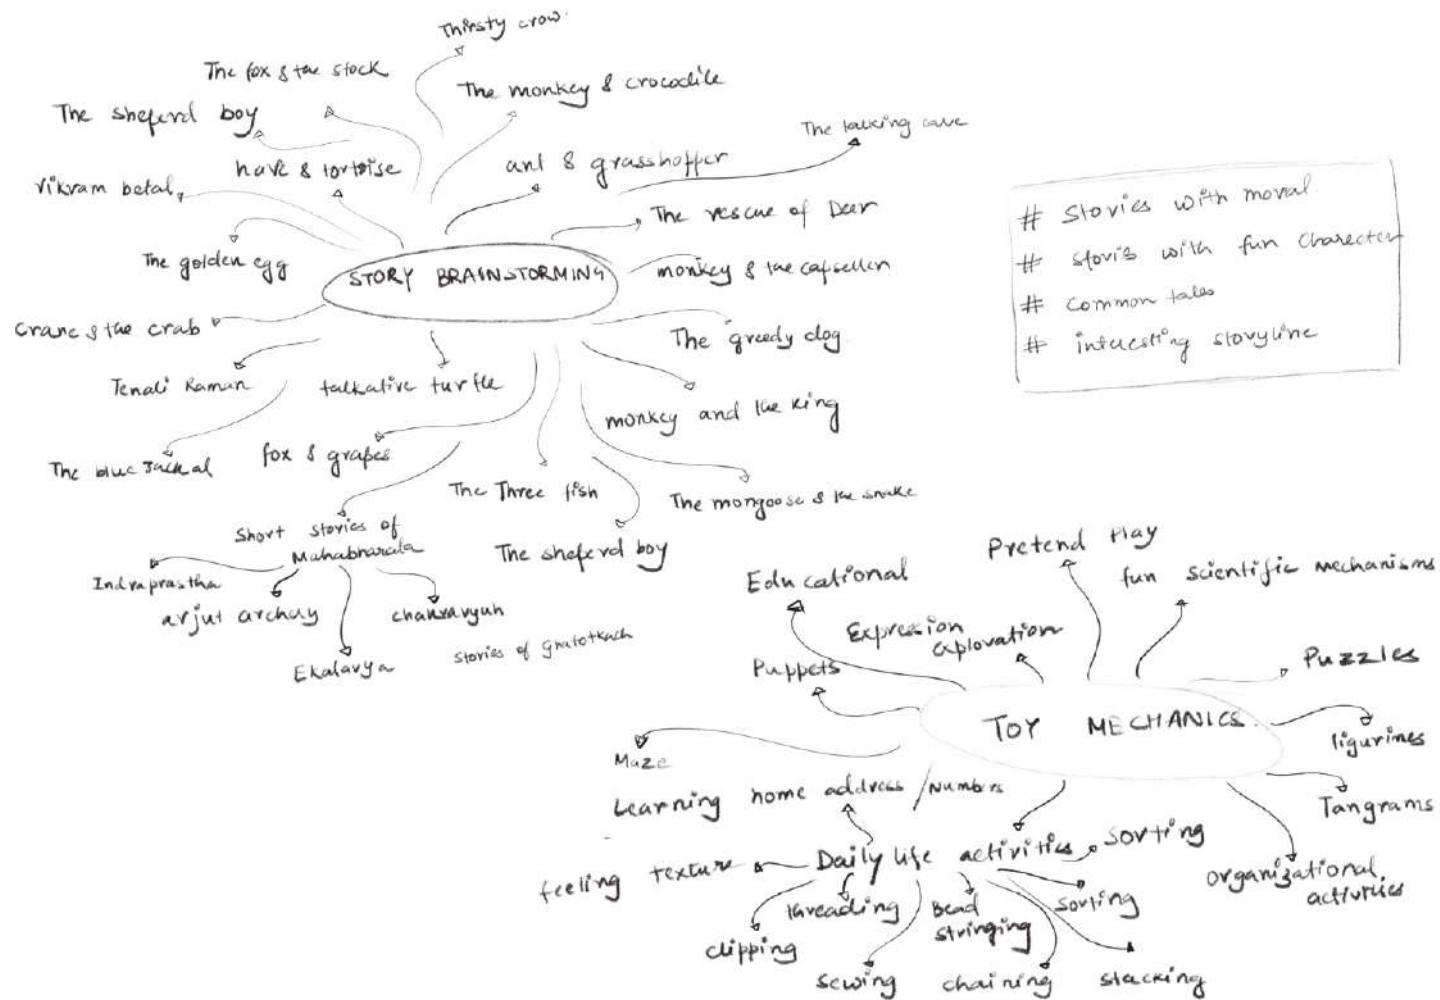 Thirsty crow.
The fox & the stock
The monkey & crocodile
The sheferd boy
The talking cave
hare & tortoise
ant & grasshopper
vikram betal
The rescue of Deer
The golden egg
STORY BRAINSTORMING
monkey & the capseller
Crane & the crab
The greedy dog
Tenali Raman
talkative turtle
monkey and the king
The blue Jackal
fox & grapes
The Three fish
The mongoose & the snake
Short stories of
Mahabharata
The sheferd boy
Indraprastha
arjut archay
chakravyuh
Ekalavya
Stories of Ghatotkach
# Stories with moral.
# storis with fun charecter
# common tales
# interesting storyline
Pretend Play
Educational
fun scientific mechanisms
Expression
explovation
Puppets
Puzzles
TOY MECHANICS
ligurines
Maze
Learning home address / Numbers
Tangrams
Daily life activities
sorting
feeling texture
organizational
activties
threading
Bead
stringing
sorting
clipping
sewing
chaining
stacking